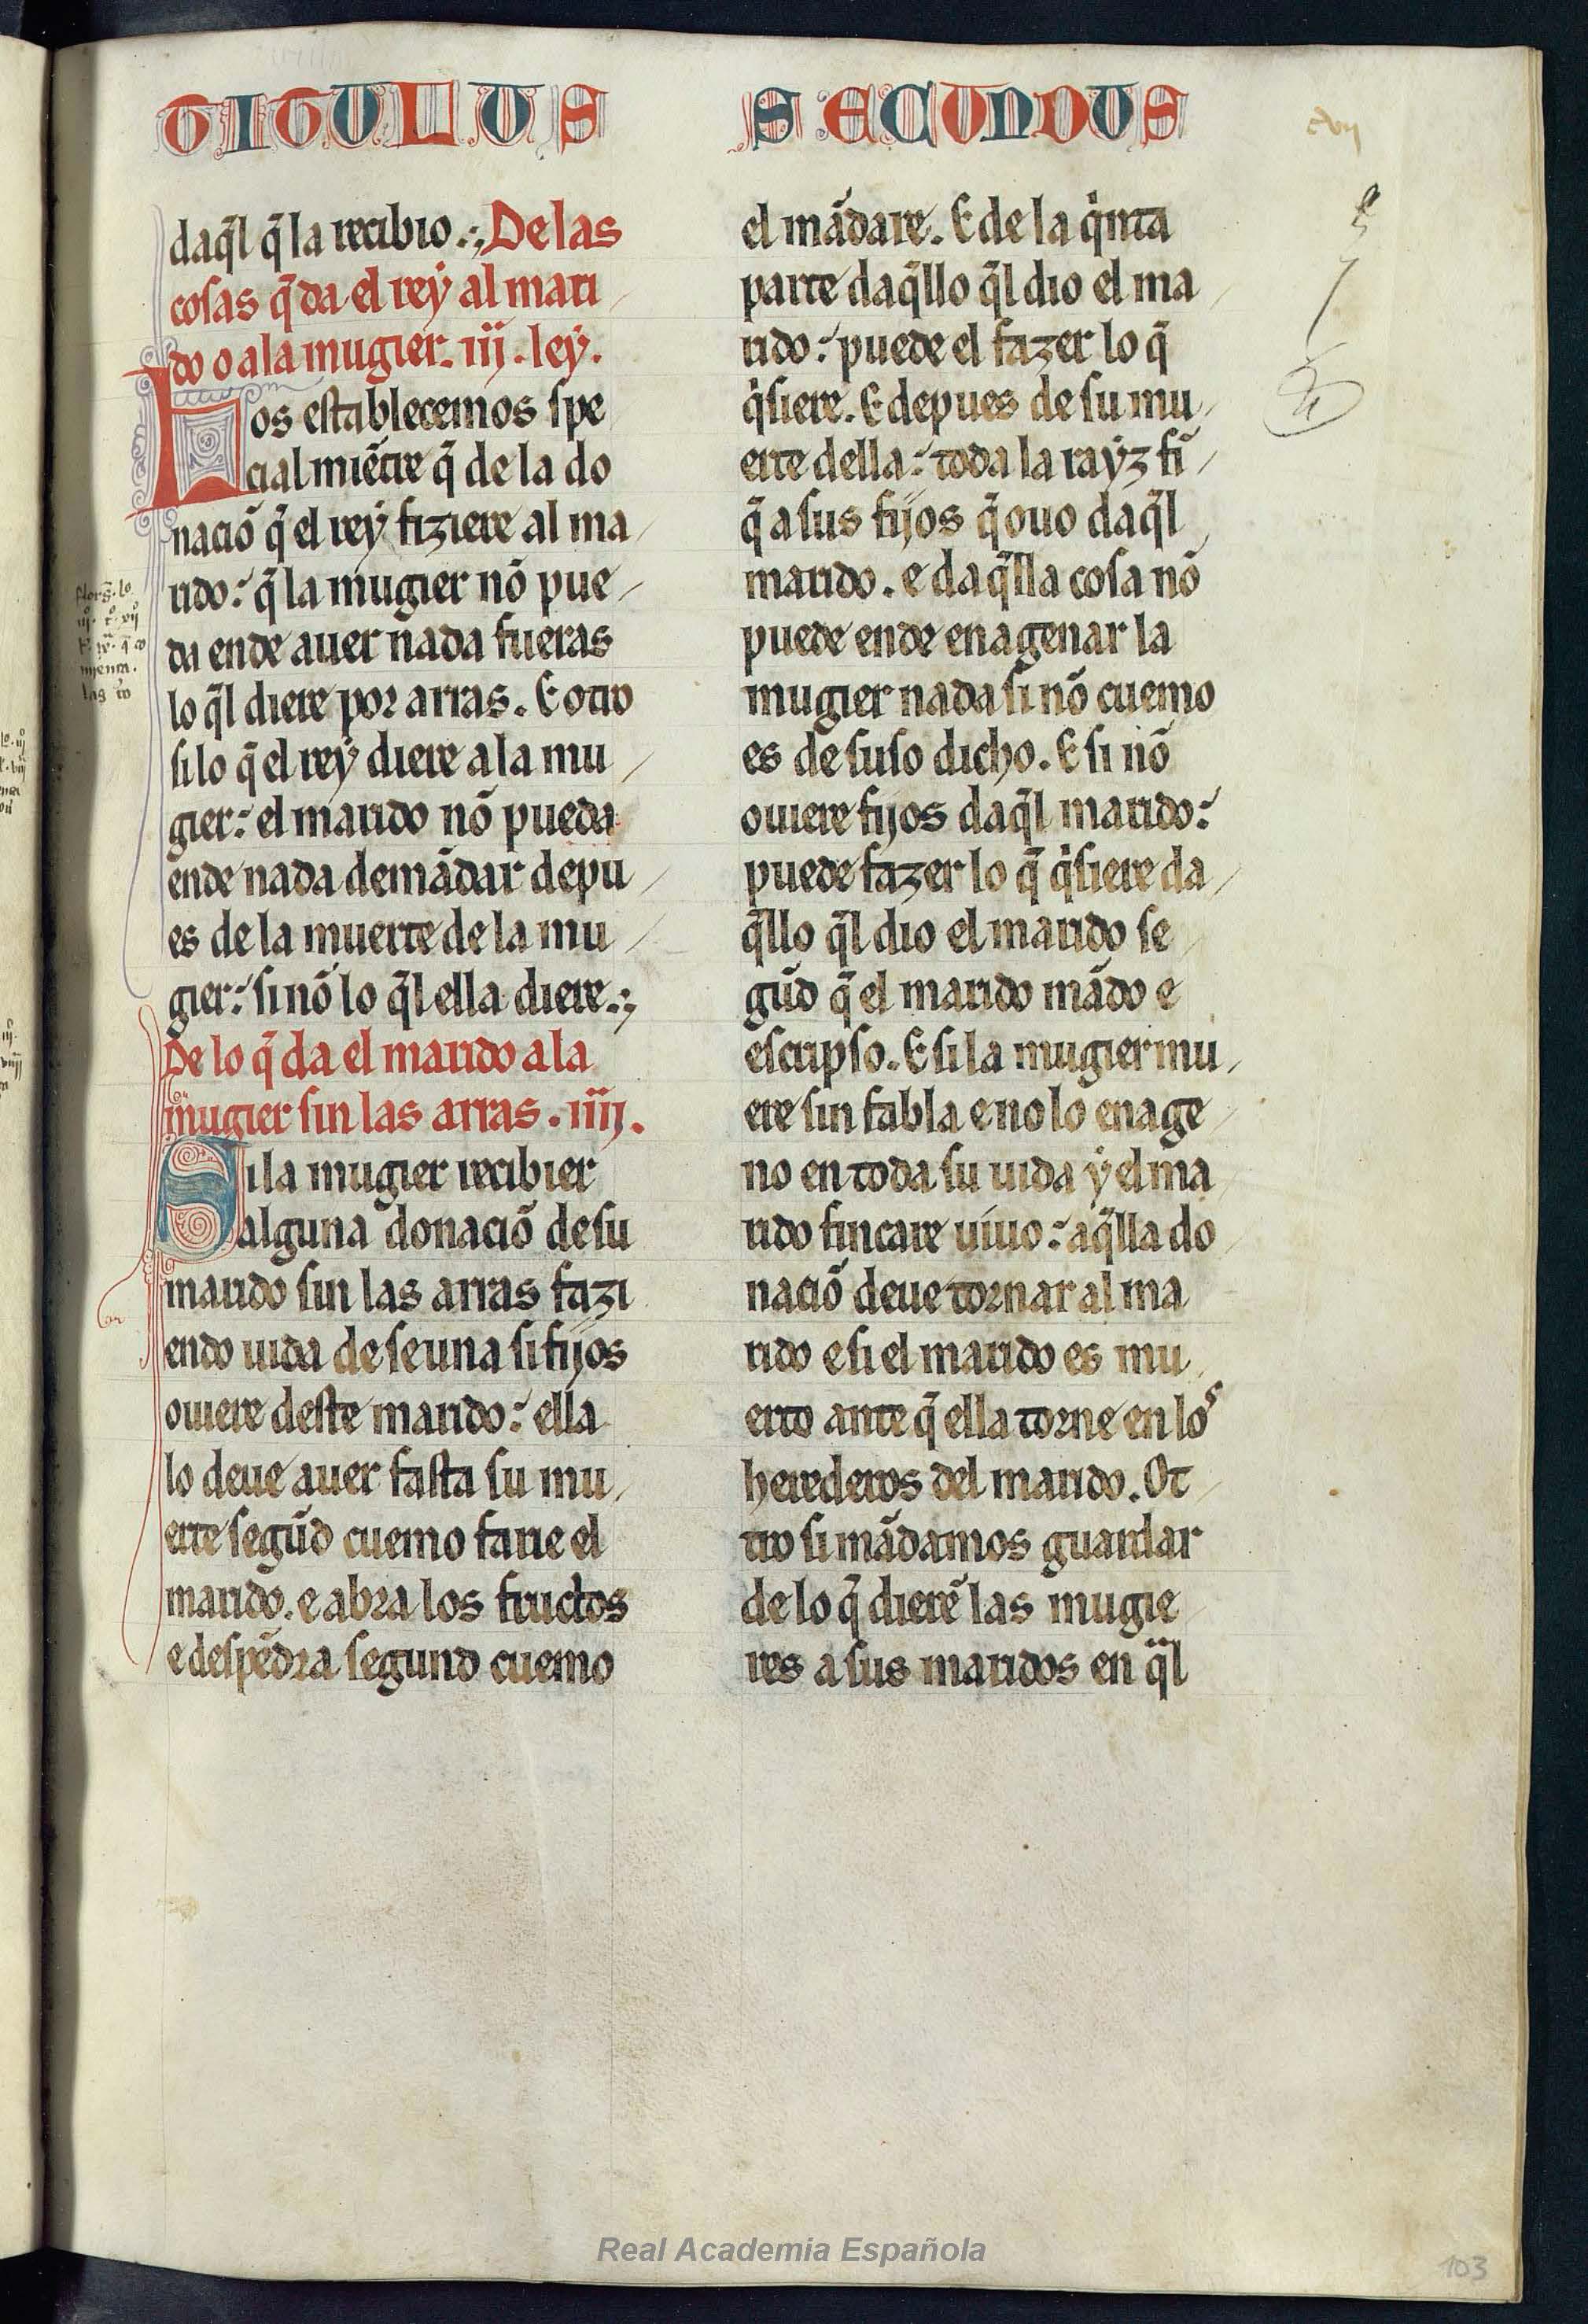 TITULUS SECUNDUS
daq̃l q̃ la recibio.;, De las
cosas q̃ da el reẏ al mari
do o a la mugier. iij. leẏ.
Nos establecemos spe
cial miẽtre q̃ de la do
naciõ q̃ el reẏ fiziere al ma
rido: q̃ la mugier nõ pue
da ende auer nada fueras
lo q̃l diere por arras. E otro
si lo q̃ el reẏ diere a la mu
gier: el marido nõ pueda
ende nada demãdar depu
es de la muerte de la mu
gier: si nõ lo q̃l ella diere.;,
De lo q̃ da el marido a la
mugier sin las arras. iiij.
Si la mugier recibier
alguna donaciõ de su
marido sin las arras fazi
endo uida de se una si fijos
ouiere deste marido: ella
lo deue auer fasta su mu
erte segũd cuemo farie el
marido. e abra los fructos
e despẽdra segund cuemo
el mãdare. E de la q̇nta
parte daq̃llo q̃l dio el ma
rido: puede el fazer lo q̃
q̇siere. E depues de su mu
erte della: toda la raẏz fi
q̃ a sus fijos q̃ ouo daq̃l
marido. e daq̃lla cosa nõ
puede ende enagenar la
mugier nada si nõ cuemo
es de suso dicho. E si nõ
ouiere fijos daq̃l marido:
puede fazer lo q̃ q̇siere da
q̃llo q̃l dio el marido se
gũd q̃ el marido mãdo e
escripso. E si la mugier mu
ere sin fabla e no lo enage
no en toda su uida ẏ el ma
rido fincare uiuo: aq̃lla do
naciõ deue tornar al ma
rido e si el marido es mu
erto ante q̃ ella torne en los
herederos del marido. Ot
tro si mãdamos guardar
de lo q̃ dierẽ las mugie
res a sus maridos en q̃l
103
Real Academia Española